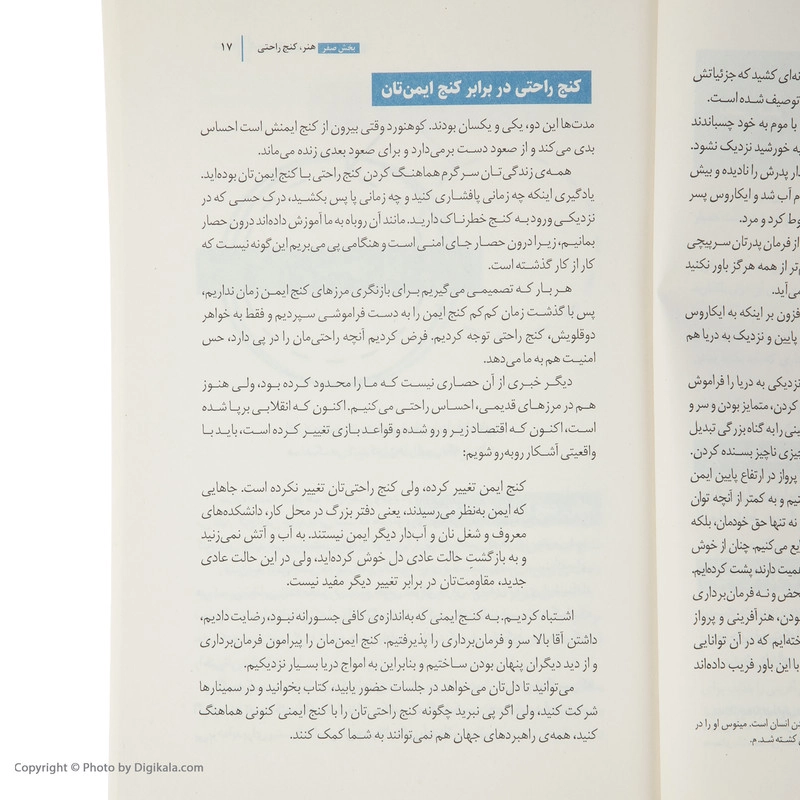 بخش صفر هنر، کنج راحتی ۱۷
کنج راحتی در برابر کنج ایمن‌تان
مدت‌ها این دو، یکی و یکسان بودند. کوهنورد وقتی بیرون از کنج ایمنش است احساس
بدی می‌کند و از صعود دست برمی‌دارد و برای صعود بعدی زنده می‌ماند.
همه‌ی زندگی‌تان سرگرم هماهنگ کردن کنج راحتی با کنج ایمن‌تان بوده‌اید.
یادگیری اینکه چه زمانی پافشاری کنید و چه زمانی پا پس بکشید، درک حسی که در
نزدیکی ورود به کنج خطرناک دارید. مانند آن روباه به ما آموزش داده‌اند درون حصار
بمانیم، زیرا درون حصار جای امنی است و هنگامی پی می‌بریم این‌گونه نیست که
کار از کار گذشته است.
هر بار که تصمیمی می‌گیریم برای بازنگری مرزهای کنج ایمن زمان نداریم،
پس با گذشت زمان کم‌کم کنج ایمن را به دست فراموشی سپردیم و فقط به خواهر
دوقلویش، کنج راحتی توجه کردیم. فرض کردیم آنچه راحتی‌مان را در پی دارد، حس
امنیت هم به ما می‌دهد.
دیگر خبری از آن حصاری نیست که ما را محدود کرده بود، ولی هنوز
هم در مرزهای قدیمی، احساس راحتی می‌کنیم. اکنون که انقلابی برپا شده
است، اکنون که اقتصاد زیر و رو شده و قواعد بازی تغییر کرده است، باید با
واقعیتی آشکار روبه‌رو شویم:
کنج ایمن تغییر کرده، ولی کنج راحتی‌تان تغییر نکرده است. جاهایی
که ایمن به‌نظر می‌رسیدند، یعنی دفتر بزرگ در محل کار، دانشکده‌های
معروف و شغل نان و آب‌دار دیگر ایمن نیستند. به آب و آتش نمی‌زنید
و به بازگشتِ حالت عادی دل خوش کرده‌اید، ولی در این حالت عادی
جدید، مقاومت‌تان در برابر تغییر دیگر مفید نیست.
اشتباه کردیم. به کنج ایمنی که به‌اندازه‌ی کافی جسورانه نبود، رضایت دادیم،
داشتن آقا بالا سر و فرمان‌برداری را پذیرفتیم. کنج ایمن‌مان را پیرامون فرمان‌برداری
و از دید دیگران پنهان بودن ساختیم و بنابراین به امواج دریا بسیار نزدیکیم.
می‌توانید تا دل‌تان می‌خواهد در جلسات حضور یابید، کتاب بخوانید و در سمینارها
شرکت کنید، ولی اگر پی نبرید چگونه کنج راحتی‌تان را با کنج ایمنی کنونی هماهنگ
کنید، همه‌ی راهبردهای جهان هم نمی‌توانند به شما کمک کنند.
کشید که جزئیاتش
توصیف شده است.
با موم به خود چسباندند
به خورشید نزدیک نشود.
پدرش را نادیده و بیش
آب شد و ایکاروس پسر
کرد و مرد.
از فرمان پدرتان سرپیچی
از همه هرگز باور نکنید
بر اینکه به ایکاروس
پایین و نزدیک به دریا هم
نزدیکی به دریا را فراموش
کردن، متمایز بودن و سر و
را به گناه بزرگی تبدیل
چیزی ناچیز بسنده کردن.
پرواز در ارتفاع پایین ایمن
و به کمتر از آنچه توان
نه تنها حق خودمان، بلکه
می‌کنیم. چنان از خوش
اهمیت دارند، پشت کرده‌ایم.
و نه فرمان‌برداری
هنرآفرینی و پرواز
که در آن توانایی
با این باور فریب داده‌اند
انسان است. مینوس او را در
کشته شد. م.
Copyright © Photo by Digikala.com